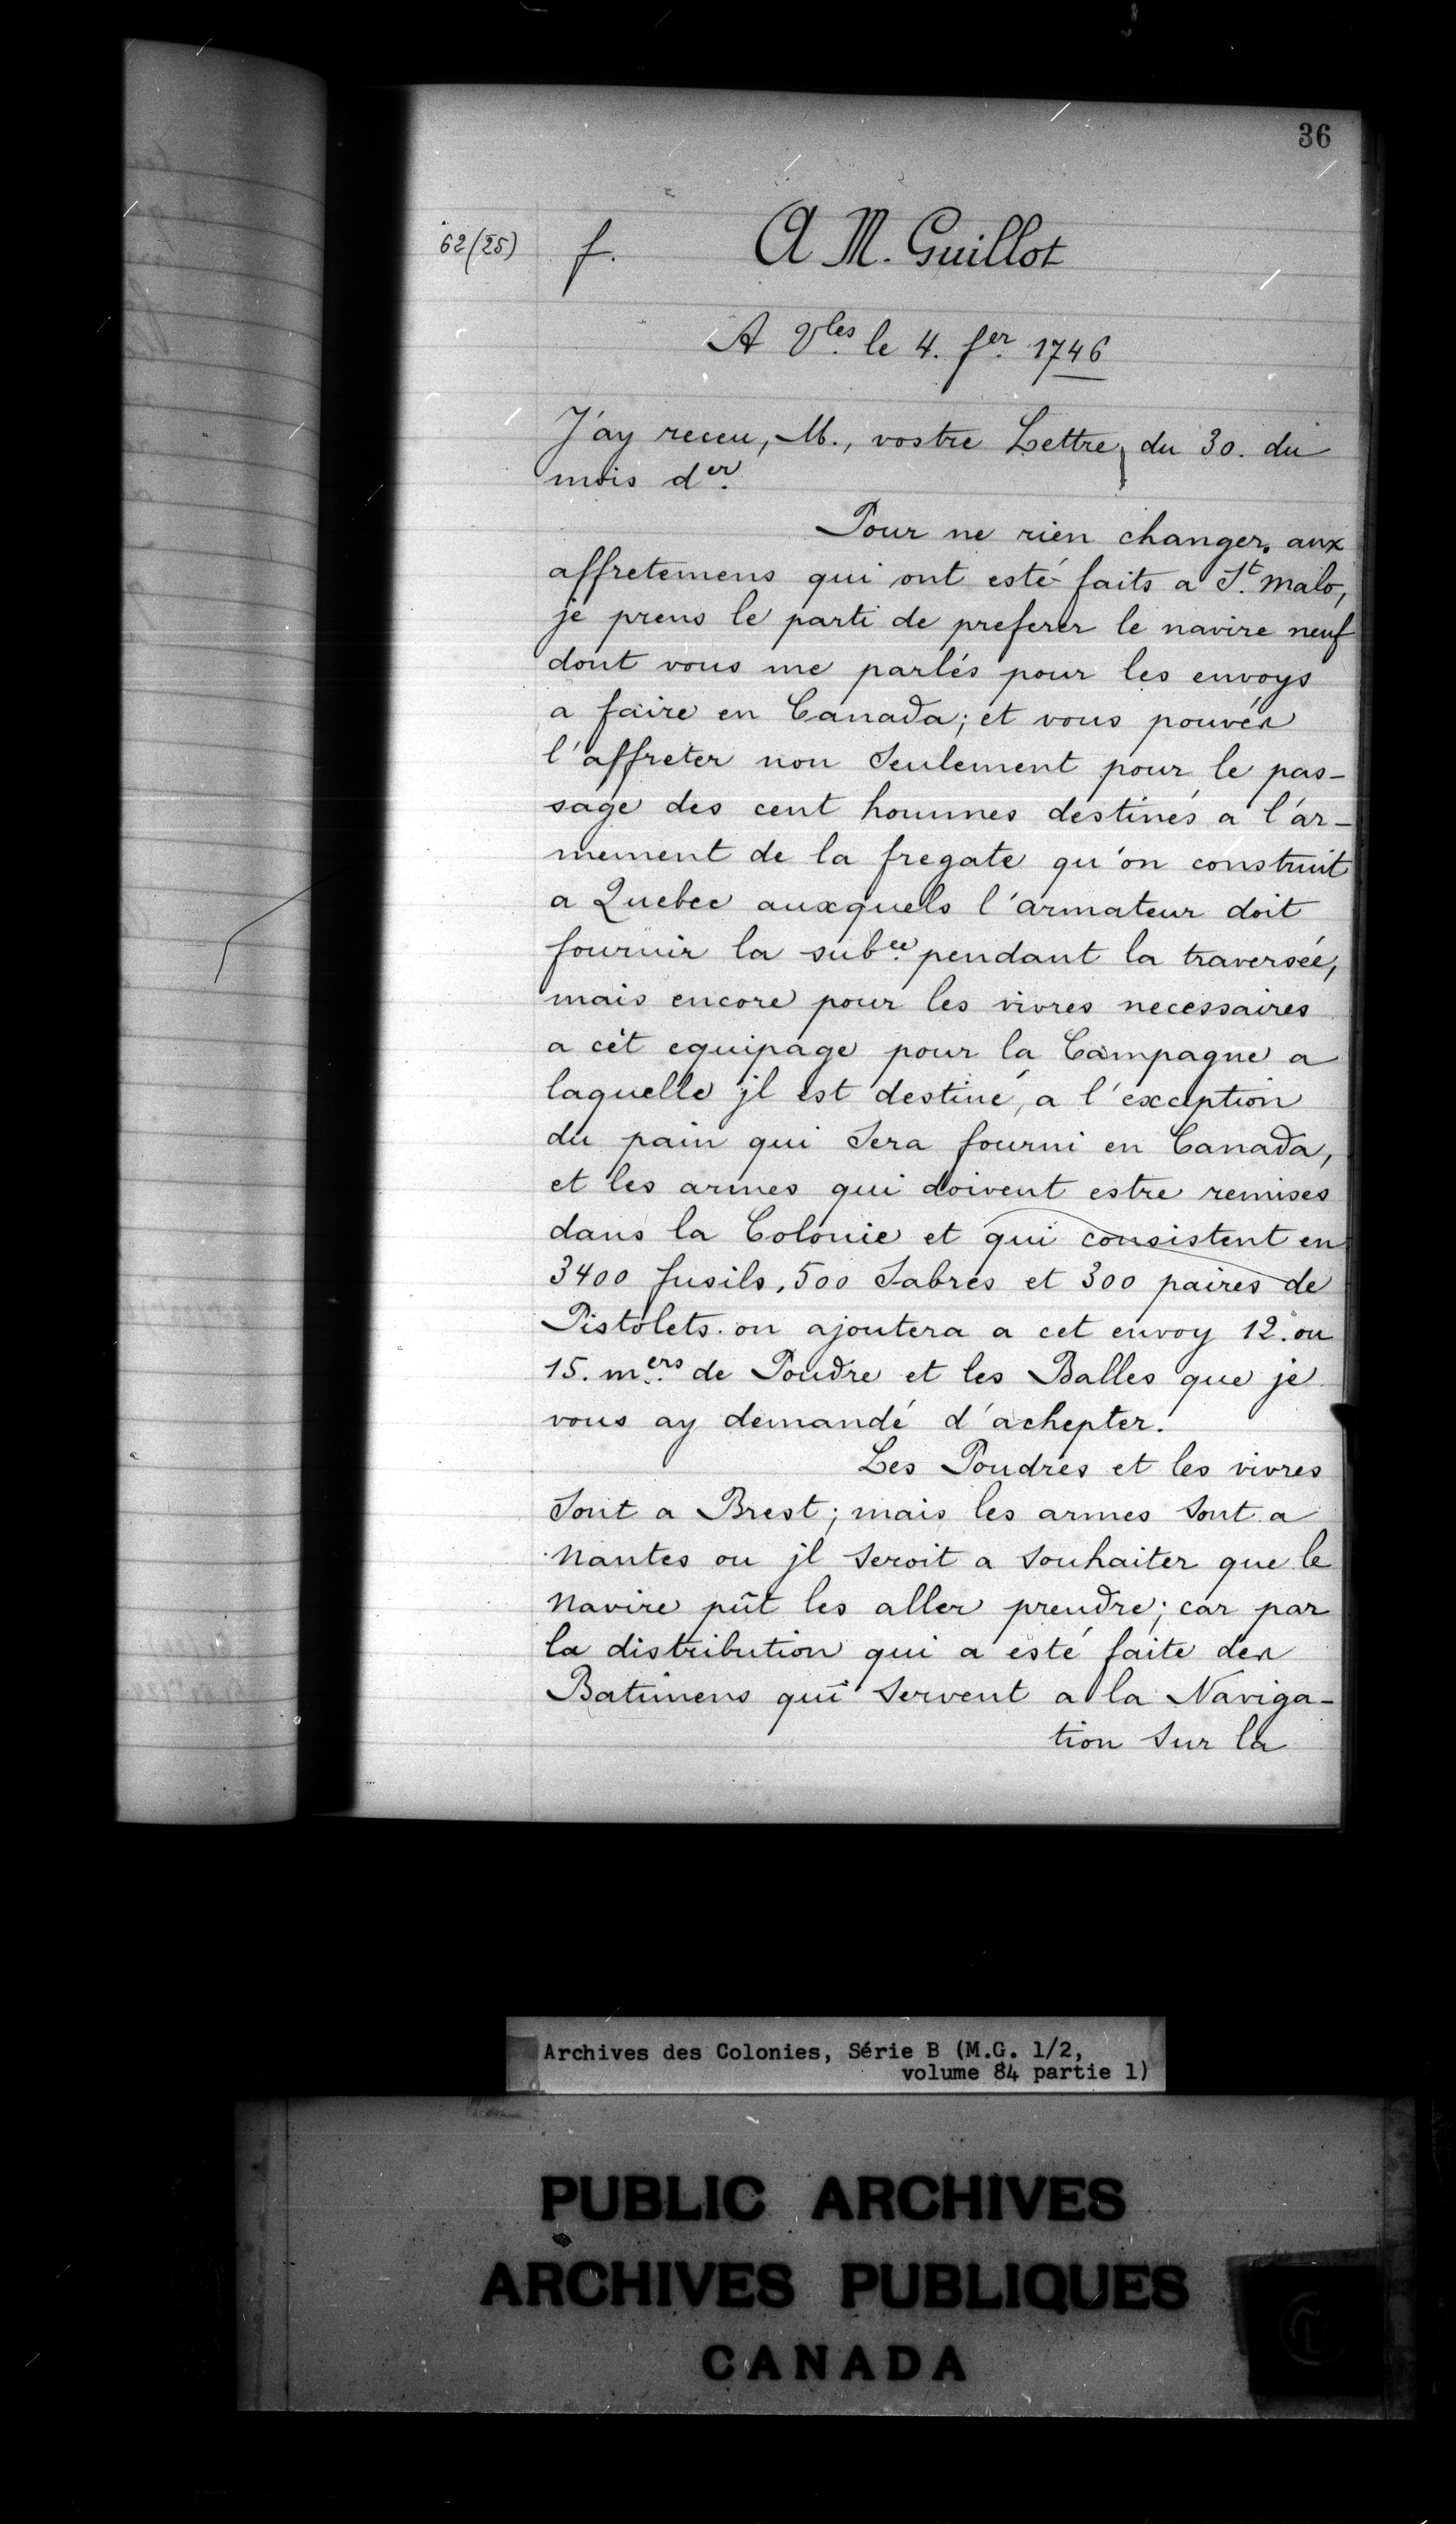 36
62 (25) f. A M. Guillot
A V.les le 4. f.er 1746
J'ay receu, M., vostre Lettre du 30. du
mois d.er
Pour ne rien changer, aux
affretemens qui ont esté faits a S.t Malo,
je prens le parti de preferer le navire neuf
dont vous me parlés pour les envoys
a faire en Canada; et vous pouvés
l'affreter non seulement pour le pas-
sage des cent hommes destinés a l'ar-
mement de la fregate qu'on construit
a Quebec auxquels l'armateur doit
fournir la sub.ce pendant la traversée,
mais encore pour les vivres necessaires
a cet equipage pour la Campagne a
laquelle jl est destiné, a l'exception
du pain qui sera fourni en Canada,
et les armes qui doivent estre remises
dans la Colonie et qui consistent en
3400 fusils, 500 Sabres et 300 paires de
Pistolets. on ajoutera a cet envoy 12. ou
15. m.ers de Poudre et les Balles que je
vous ay demandé d'achepter.
Les Poudres et les vivres
sont a Brest; mais les armes sont a
Nantes ou jl seroit a souhaiter que le
Navire pût les aller prendre; car par
la distribution qui a esté faite des
Batimens qui servent a la Naviga-
tion sur la
Archives des Colonies, Série B (M.G. 1/2,
volume 84 partie 1)
PUBLIC ARCHIVES
ARCHIVES PUBLIQUES
CANADA